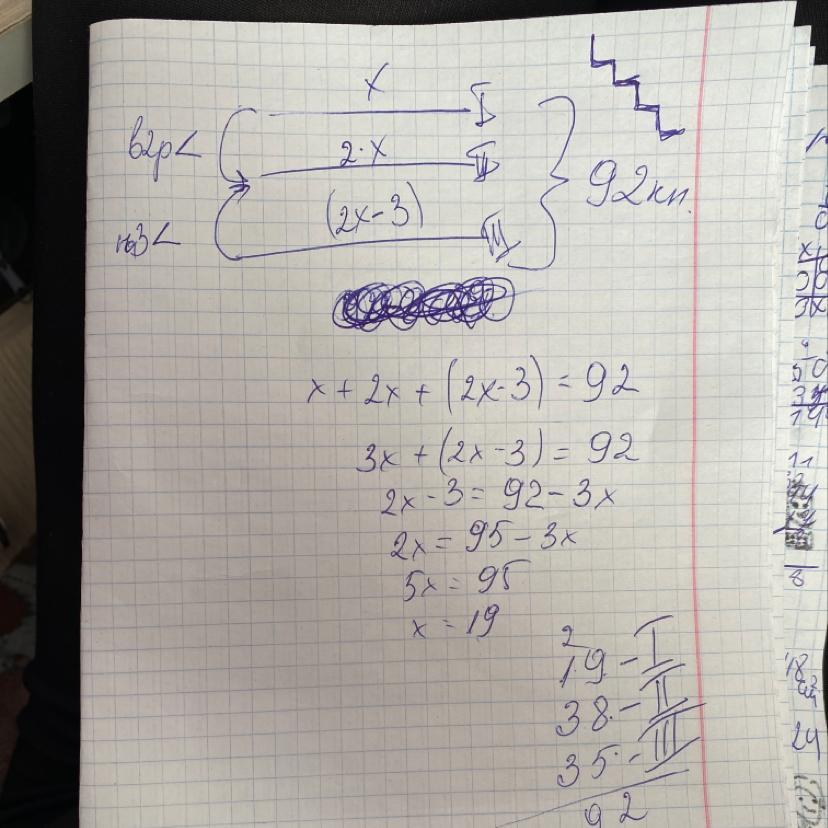 x
I
в2р<
2·x
II
92кн.
(2x-3)
на3<
III
x + 2x + (2x-3) = 92
3x + (2x-3) = 92
2x - 3 = 92 - 3x
2x = 95 - 3x
5x = 95
x = 19
2
19 - I
38 - II
35 - III
92
11
8
18
24